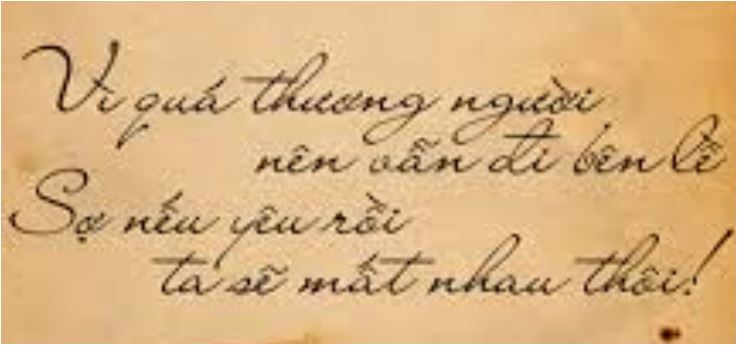 Vì quá thương người
nên vẫn đi bên lề
Sợ nếu yêu rồi
ta sẽ mất nhau thôi!